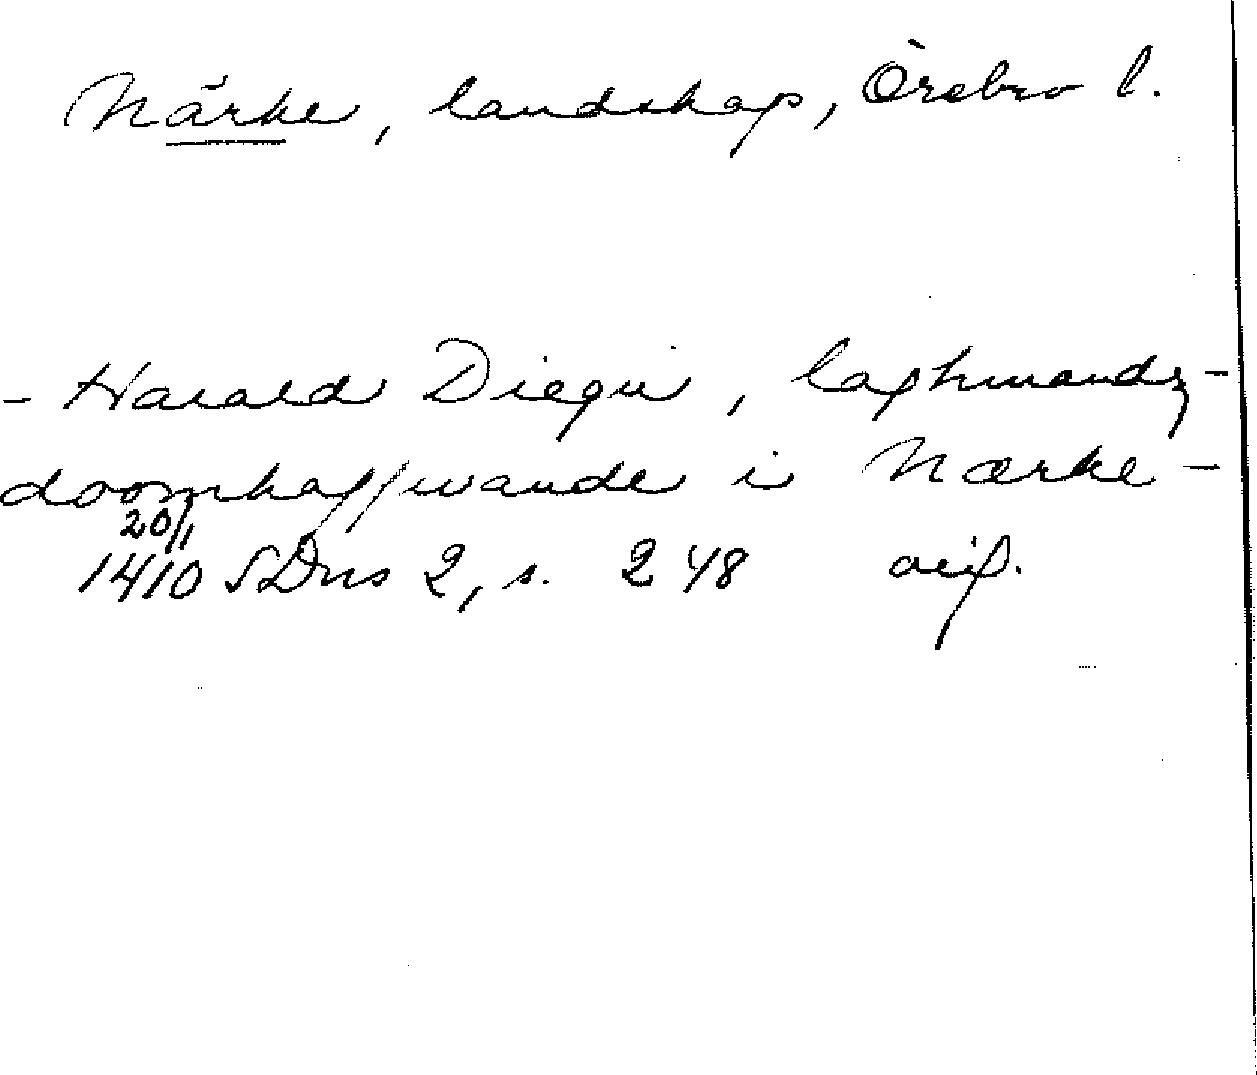 Närke, landskap, Örebro l.
- Harald Diegn, laghmandz-
doomhaffwande i Nærke -
20/1
1410 SDns 2, s. 248 avs.